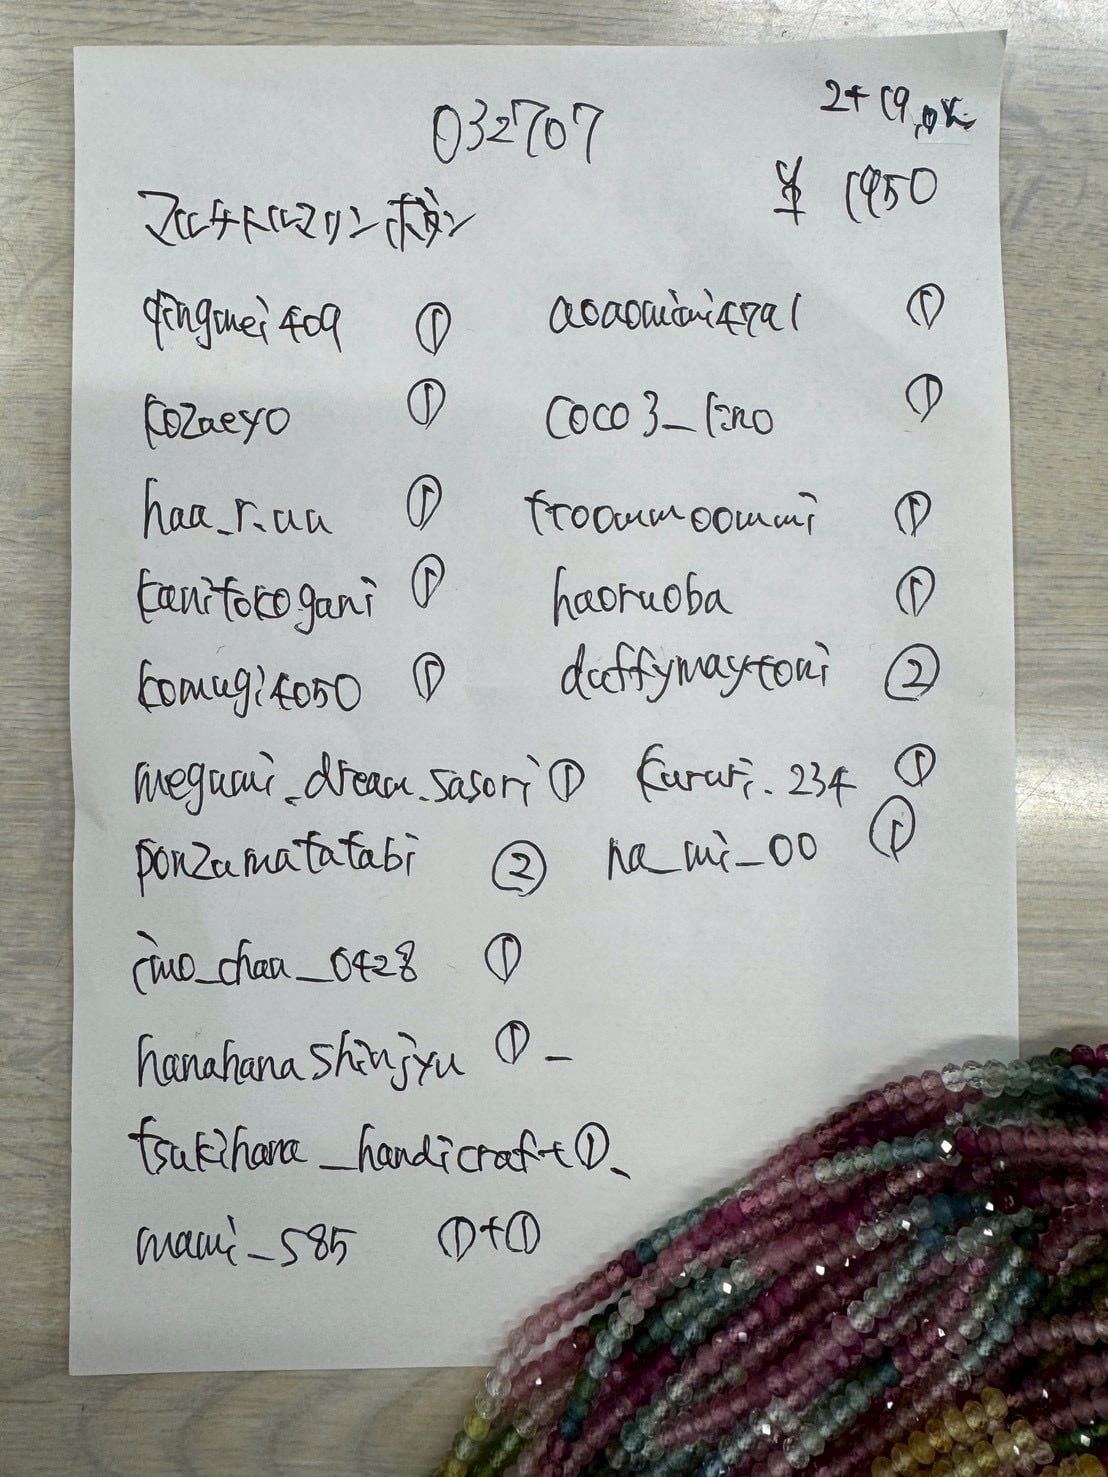 032707
¥ 1950
マルチトルマリンボタン
qingmei409 ①
aoaomimi4791 ①
kozaeyo ①
coco3_lino ①
haa_r.uu ①
ttoommoommi ①
kanitokogani ①
haoruoba ①
komugi4050 ①
duffymaytomi ②
megumi_dream.sasori ①
kururi.234 ①
ponzumatatabi ②
na_mi_00 ①
imo_chan_0428 ①
hanahanashinjyu ① -
tsukihana_handicraft ①
mami_585 ①+①